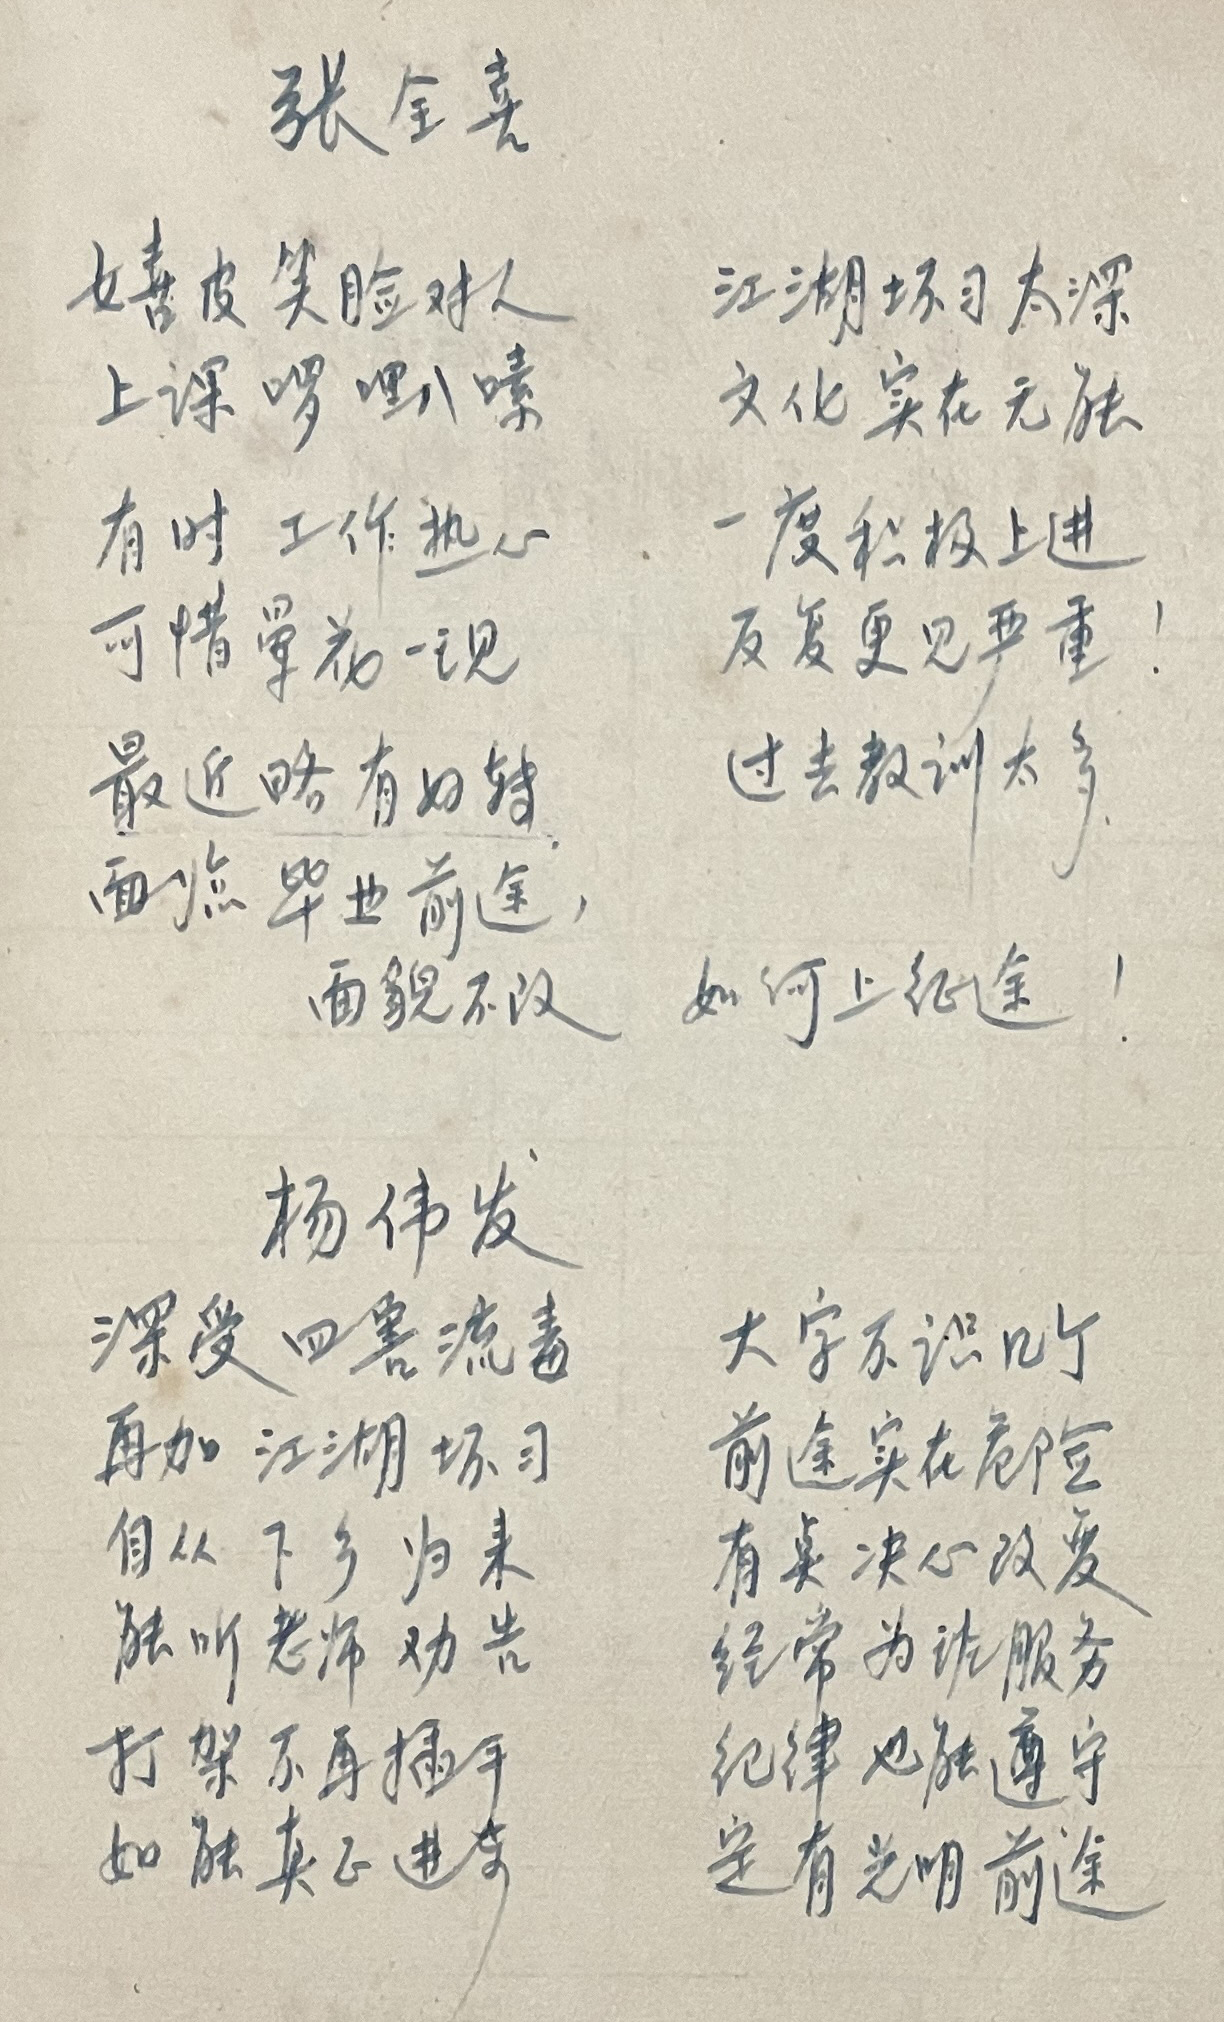 张全喜
嬉皮笑脸对人 江湖坏习太深
上课啰哩叭嗦 文化实在无能
有时工作热心 一度积极上进
可惜昙花一现 反复更见严重！
最近略有好转 过去教训太多
面临毕业前途，
面貌不改 如何上征途！
杨伟发
深受四害流毒 大字不识几个
再加江湖坏习 前途实在危险
自从下乡归来 有真决心改变
能听老师劝告 经常为班服务
打架不再插手 纪律也能遵守
如能真正进步 定有光明前途